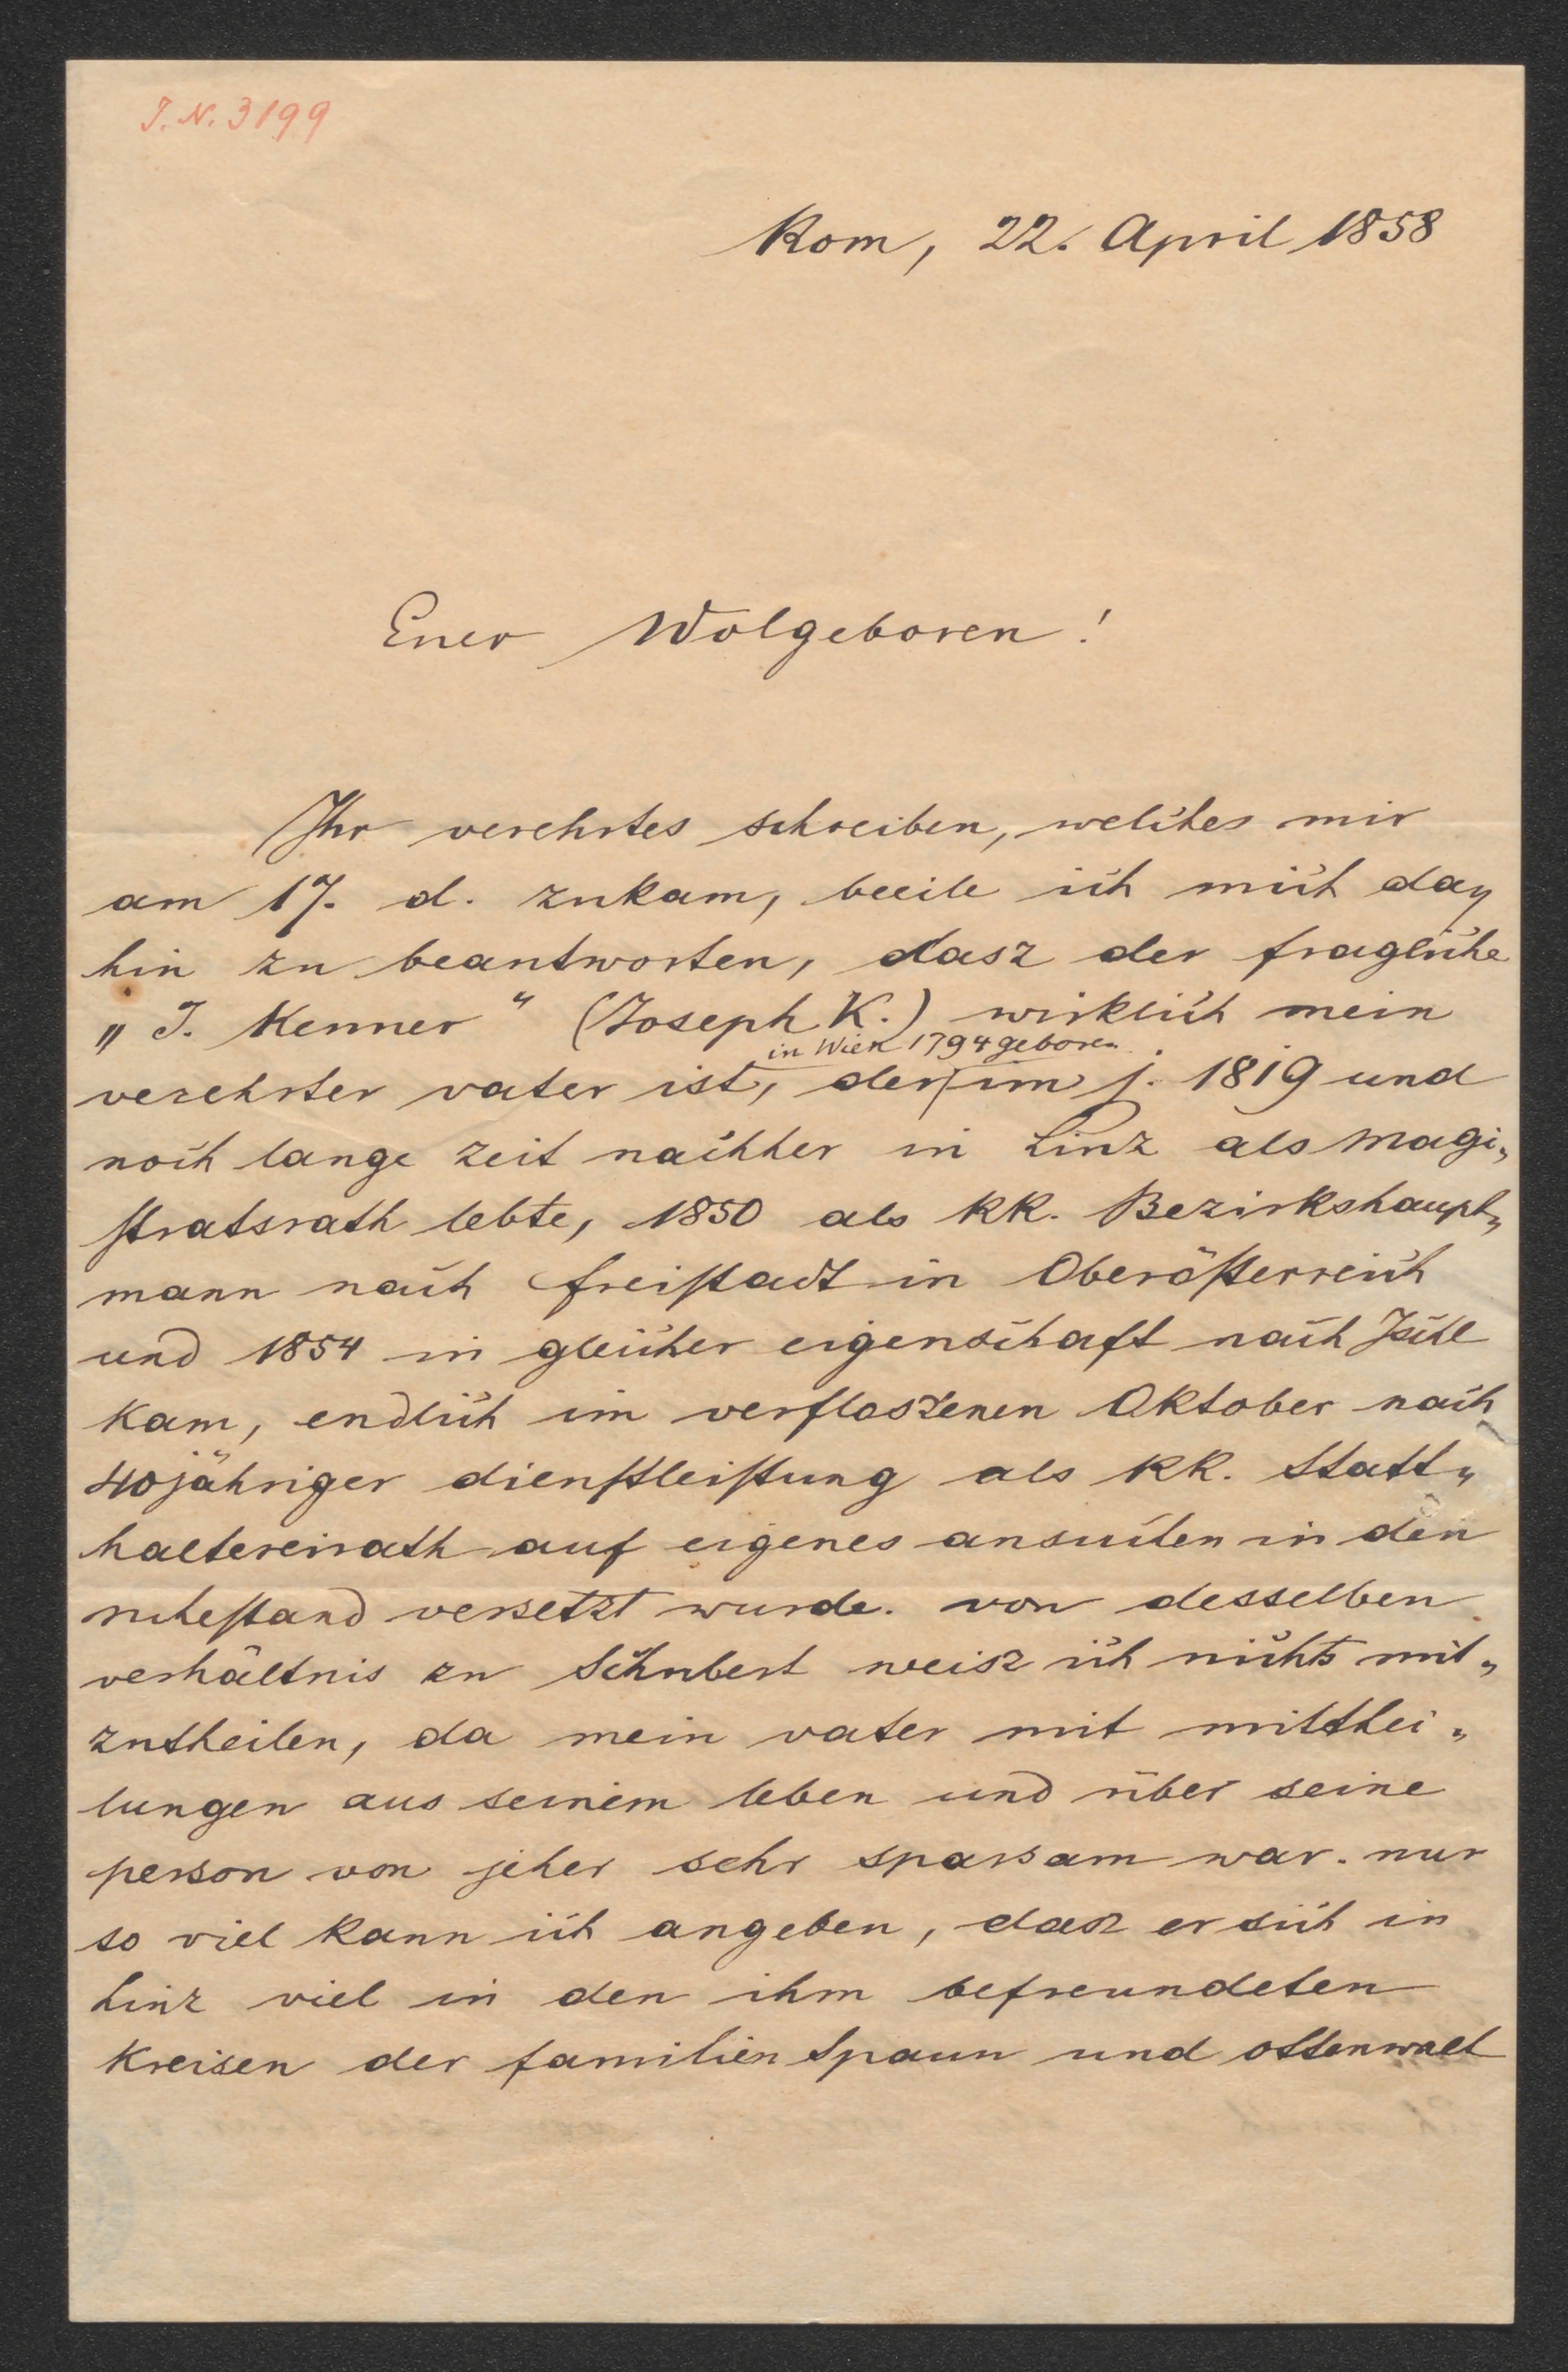 J. N. 3199
Rom, 22. April 1858
Euer Wolgeboren!
Ihr verehrtes schreiben, welches mir
am 17. d. zukam, beeile ich mich da„
hin zu beantworten, dasz der fragliche
„J. Kenner“ (Joseph K.) wirklich mein
in Wien 1794 geboren
verehrter vater ist, der im j. 1819 und
noch lange zeit nachher in Linz als Magi„
stratsrath lebte, 1850 als kk. Bezirkshaupt„
mann nach Freistadt in Oberösterreich
und 1854 in gleicher eigenschaft nach Ischl
kam, endlich im verfloszenen Oktober nach
40jähriger dienstleistung als kk. Statt„
haltereirath auf eigenes ansuchen in den
ruhestand versetzt wurde. von desselben
verhältnis zu Schubert weisz ich nichts mit„
zutheilen, da mein vater mit mitthei„
lungen aus seinem leben und über seine
person von jeher sehr sparsam war. nur
so viel kann ich angeben, dasz er sich in
Linz viel in den ihm befreundeten
kreisen der familien Spaun und Ottenwalt